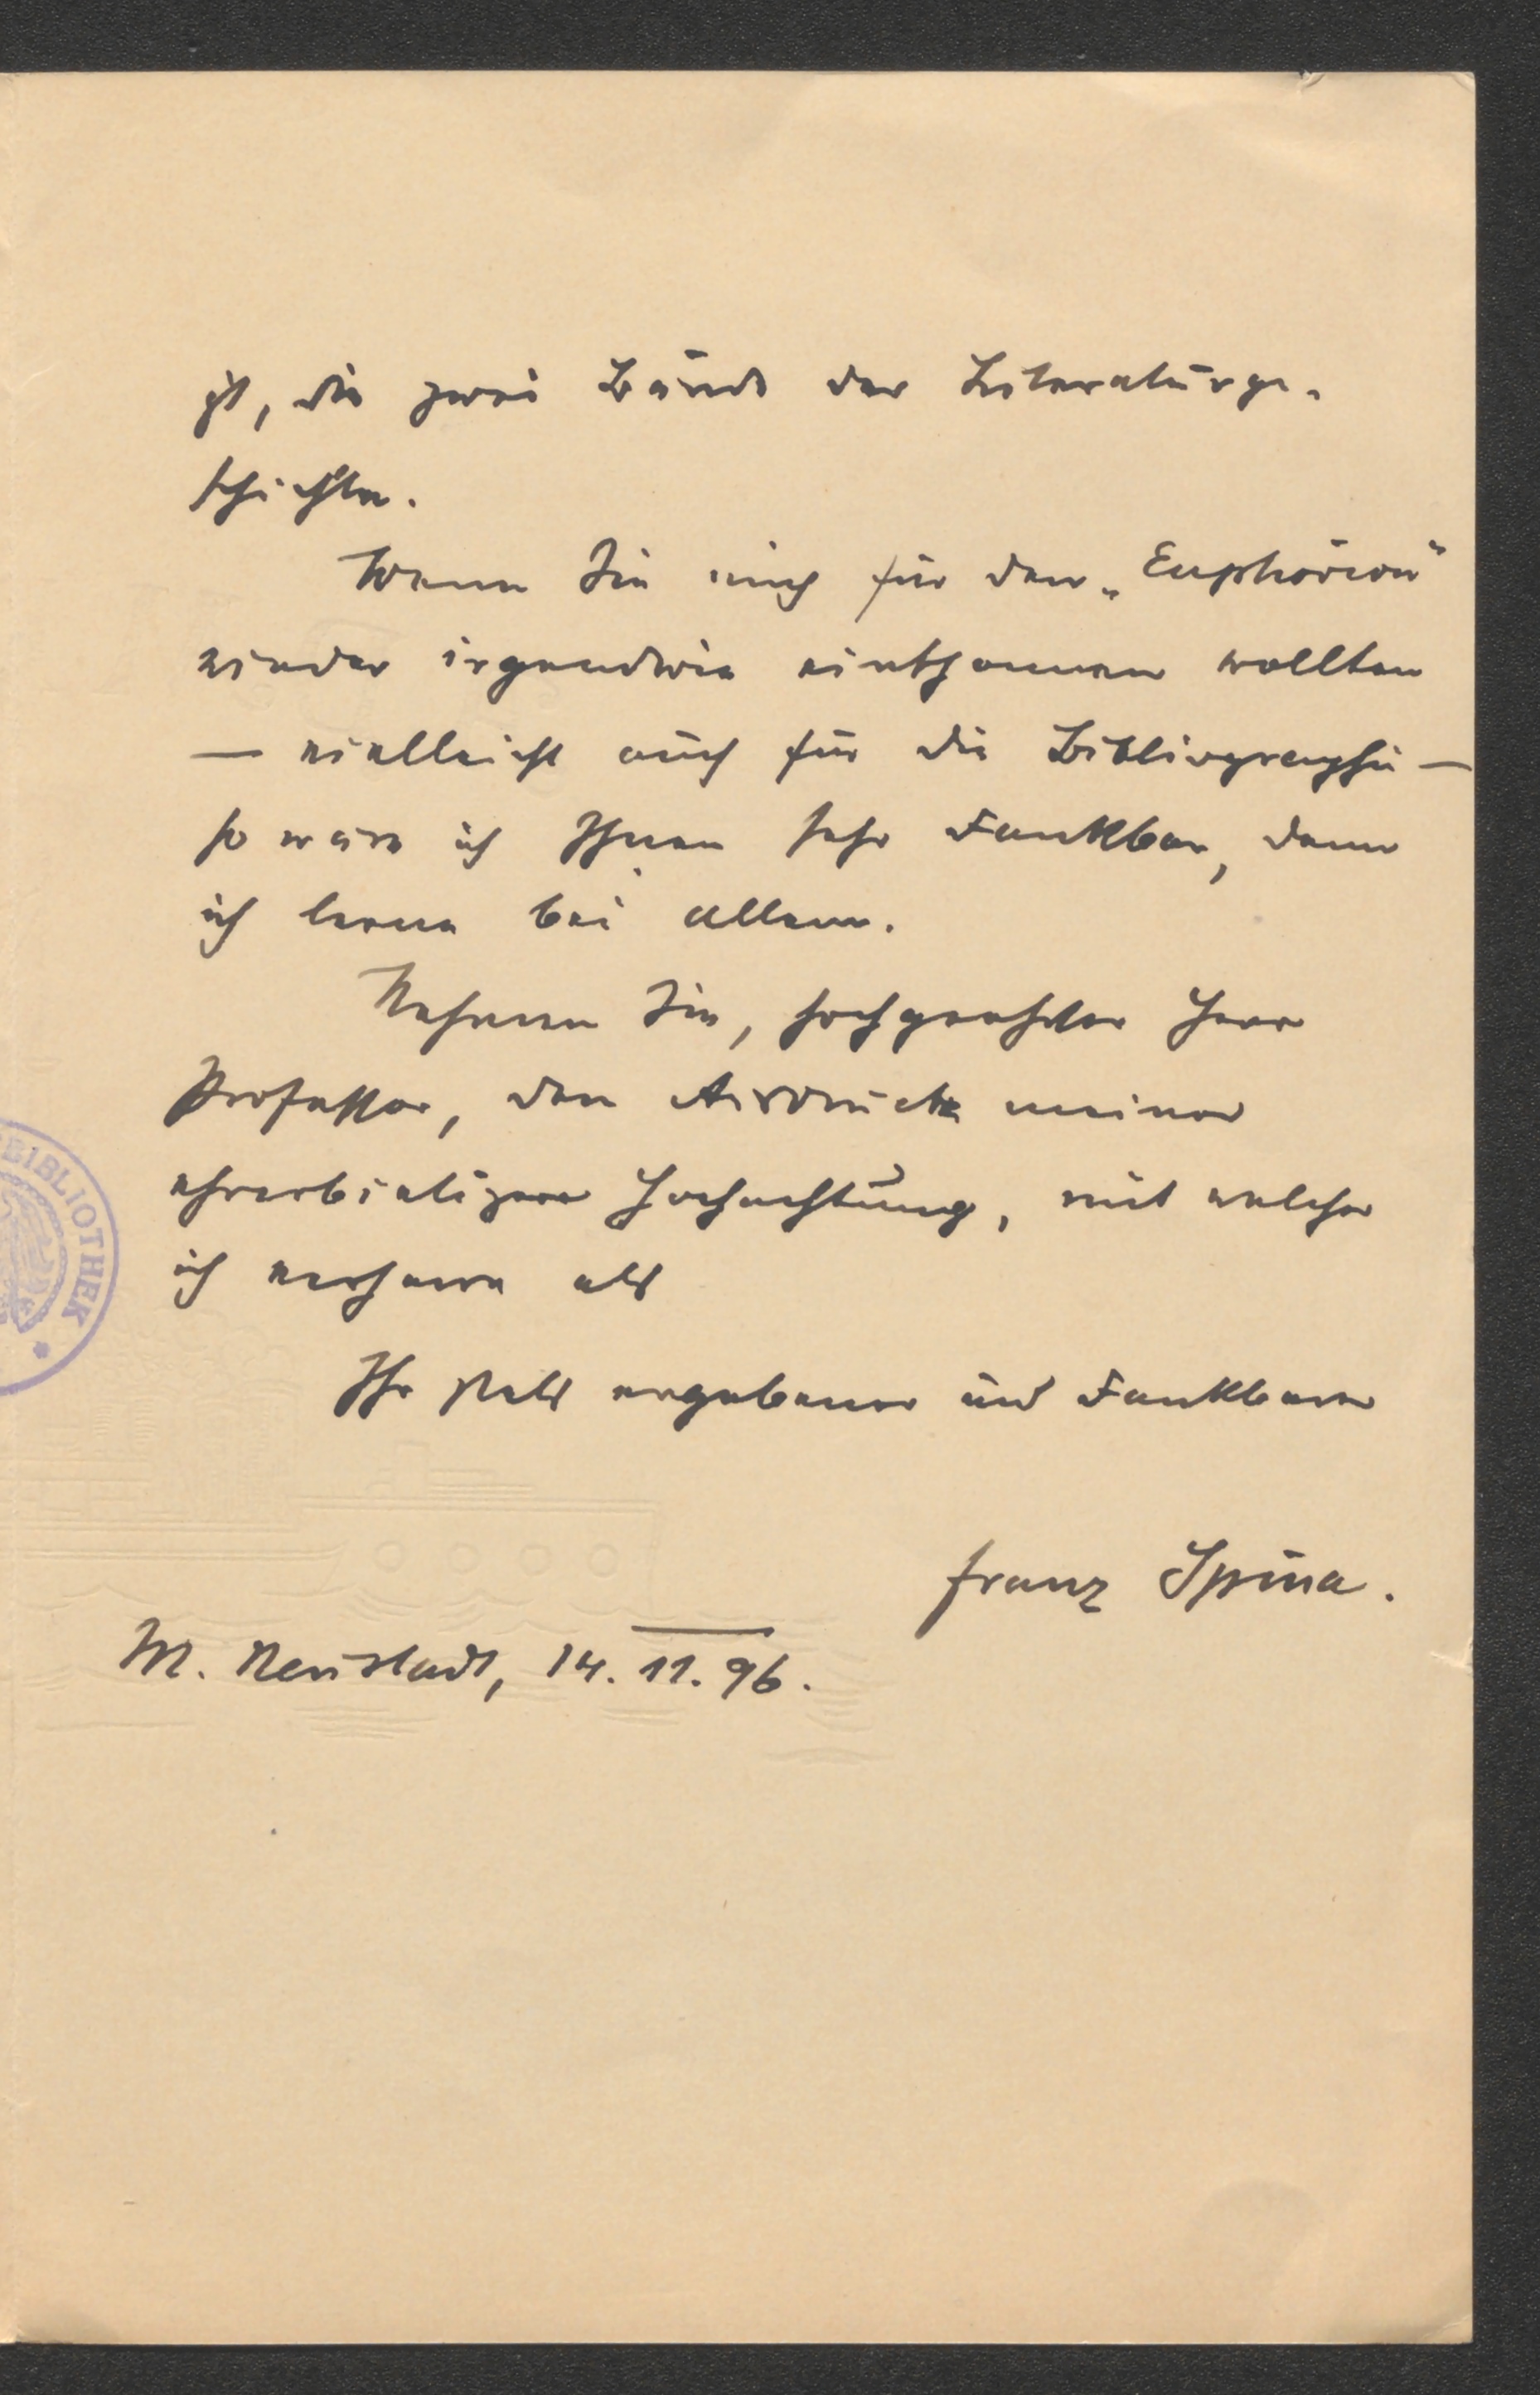 ist, die zwei Bände der Literaturge-
schichte.
Wenn Sie mich für den „Euphorion“
wieder irgendwie einspannen wollten
— vielleicht auch für die Bibliographie —
so wäre ich Ihnen sehr dankbar, denn
ich lerne bei allem.
Nehmen Sie, hochgeehrter Herr
Professor, den Ausdruck meiner
ehrerbietigen Hochachtung, mit welcher
ich verharre als
Ihr stets ergebener und dankbarer
Franz Spina.
M. Neustadt, 14. 11. 96.
BIBLIOTHEK